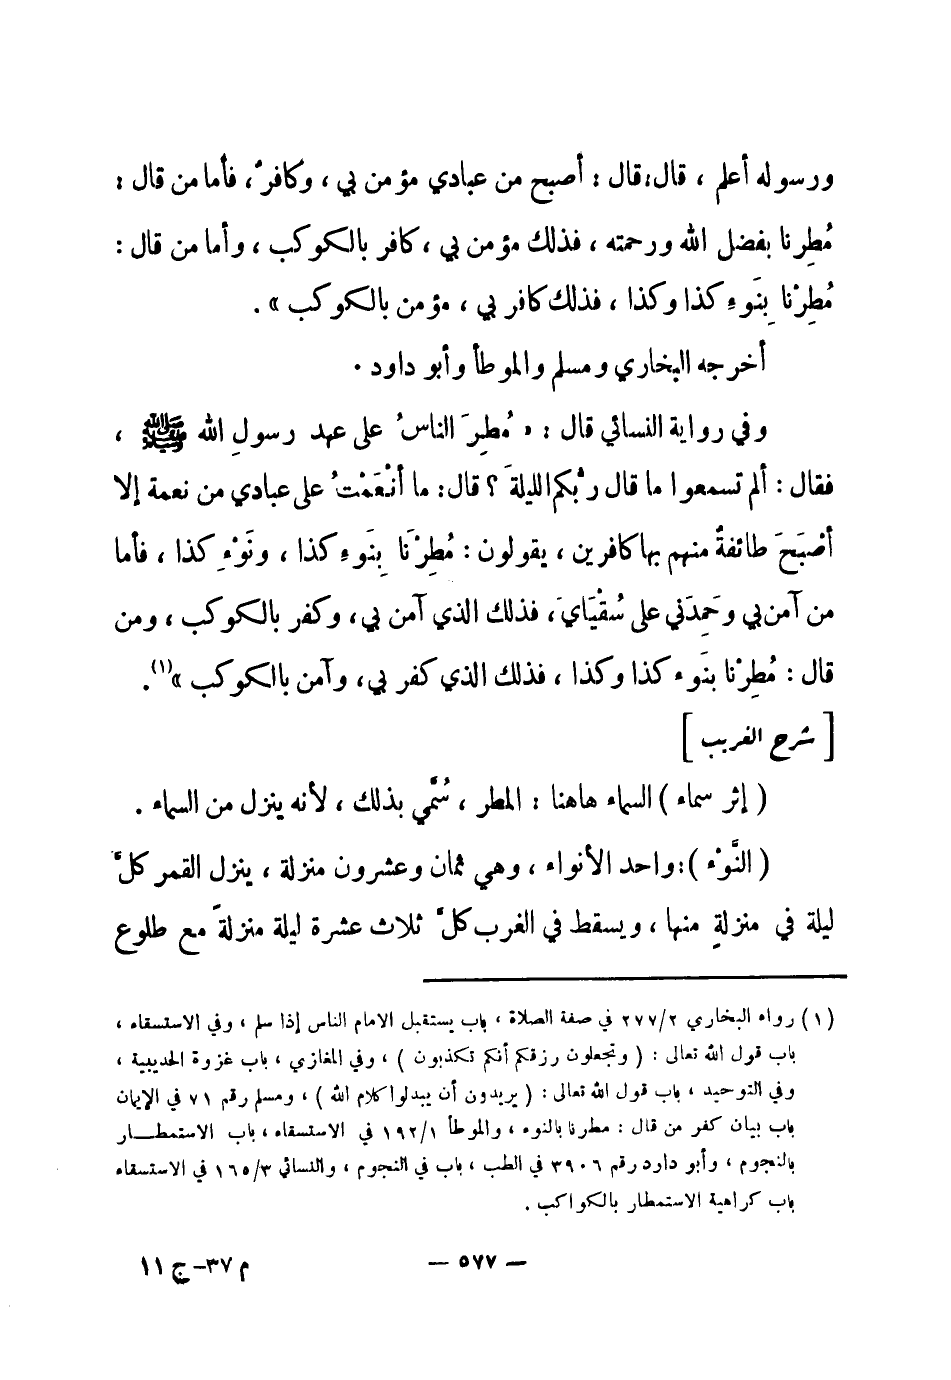 ورسوله أعلم ، قال: قال : أصبح من عبادي مؤمن بي ، وكافرٌ ، فأما من قال :
مُطِرنا بفضل الله ورحمته ، فذلك مؤمن بي ، كافر بالكوكب ، وأما من قال :
مُطِرْنا بِنَوءِ كذا وكذا ، فذلك كافر بي ، مؤمن بالكوكب » .
أخرجه البخاري ومسلم والموطأ وأبو داود .
وفي رواية النسائي قال : « مُطِرَ الناسُ على عهد رسولِ الله ﷺ ،
فقال : ألم تسمعوا ما قال ربُّكم الليلةَ ؟ قال: ما أنْعَمْتُ على عبادي من نعمة إلا
أصْبَحَ طائفةٌ منهم بها كافرين ، يقولون : مُطِرْنَا بِنَوءِ كذا ، ونَوْءِ كذا ، فأما
من آمن بي وحَمِدَني على سُقْيَايَ ، فذلك الذي آمن بي، وكفر بالكوكب ، ومن
قال : مُطِرْنا بنَوء كذا وكذا ، فذلك الذي كفر بي، وآمن باالكوكب »(١).
[ شرح الغريب ]
( إثر سماء ) السماء هاهنا : المطر ، سُمِّي بذلك ، لأنه ينزل من السماء .
( النَّوْء ): واحد الأنواء ، وهي ثمان وعشرون منزلة ، ينزل القمر كلَّ
ليلة في منزلةٍ منها ، ويسقط في الغرب كلَّ ثلاث عشرة ليلة منزلةً مع طلوع
(١) رواه البخاري ٢/ ٢٧٧ في صفة الصلاة ، باب يستقبل الامام الناس إذا سلم ، وفي الاستسقاء ،
باب قول الله تعالى : ( وتجعلون رزقكم أنكم تكذبون ) ، وفي المغازي ، باب غزوة الحديبية ،
وفي التوحيد ، باب قول الله تعالى : ( يريدون أن يبدلوا كلام الله ) ، ومسلم رقم ٧١ في الإيمان
باب بيان كفر من قال : مطرنا بالنوء ، والموطأ ١/ ١٩٢ في الاستسقاء ، باب الاستمطــار
بالنجوم ، وأبو دارد رقم ٣٩٠٦ في الطب ، باب في النجوم ، والنسائي ٣/ ١٦٥ في الاستسقاء
باب كراهية الاستمطار بالكواكب .
– ٥٧٧ –
م ٣٧–ج ١١